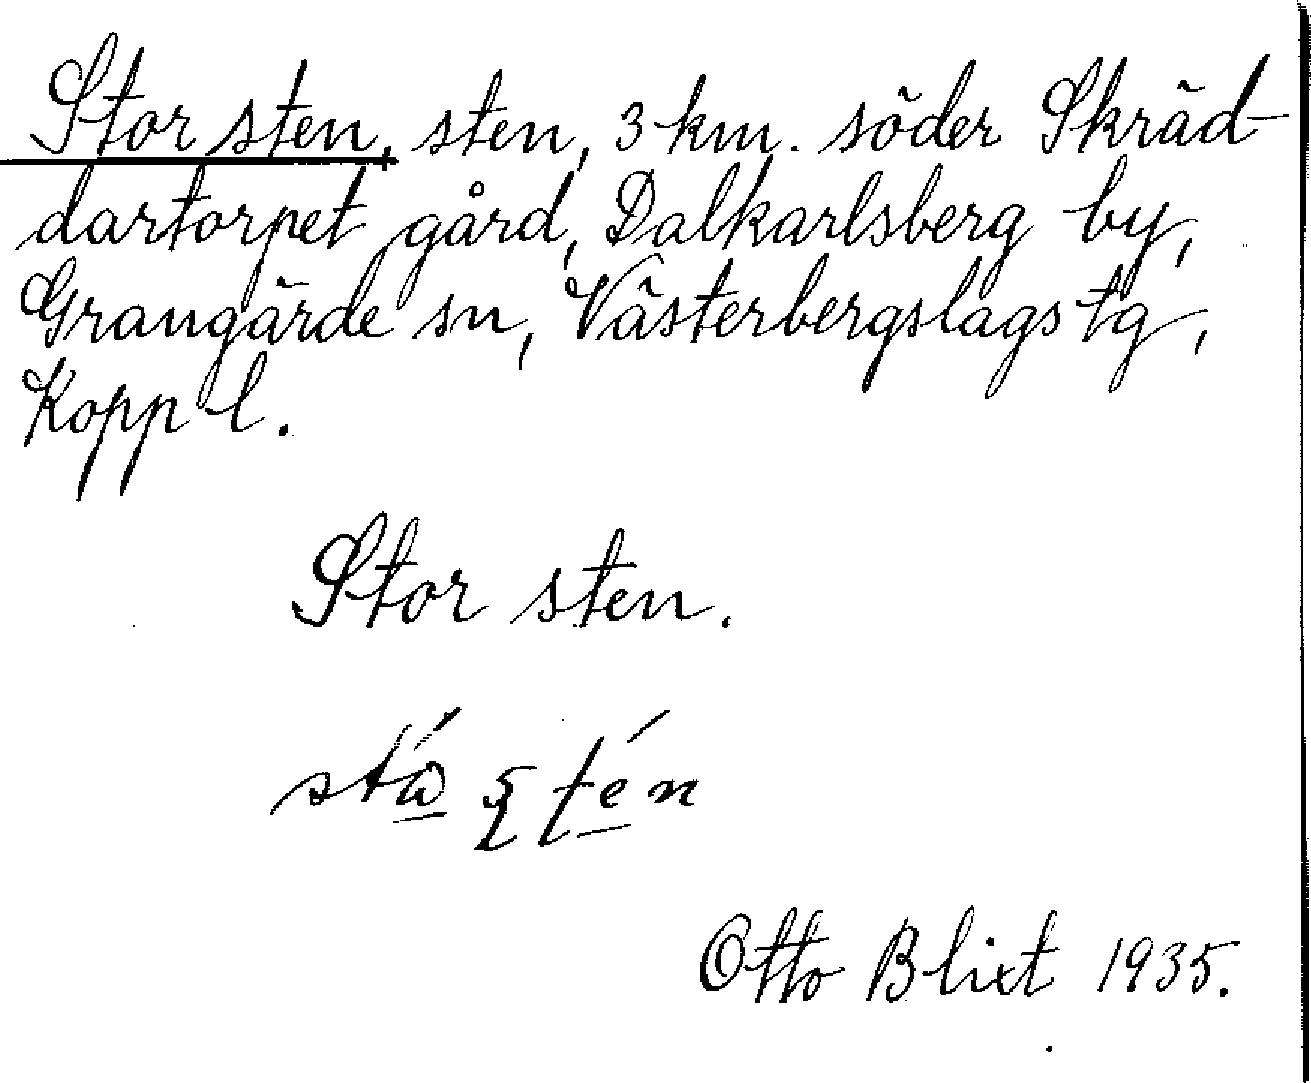 Stor sten, sten, 3 km. söder Skräd-
dartorpet gård, Dalkarlsberg by,
Grangärde sn, Västerbergslags tg,
Kopp l.
Stor sten.
Otto Blixt 1935.